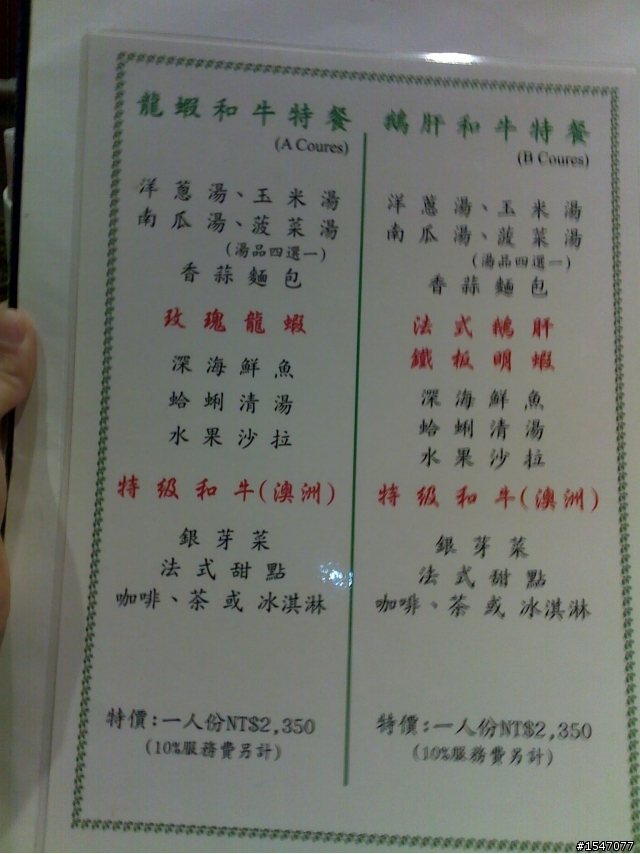 龍蝦和牛特餐
(A Coures)
洋蔥湯、玉米湯
南瓜湯、菠菜湯
(湯品四選一)
香蒜麵包
玫瑰龍蝦
深海鮮魚
蛤蜊清湯
水果沙拉
特级和牛(澳洲)
銀芽菜
法式甜點
咖啡、茶或冰淇淋
特價:一人份NT$2,350
(10%服務費另計)
鵝肝和牛特餐
(B Coures)
洋蔥湯、玉米湯
南瓜湯、菠菜湯
(湯品四選一)
香蒜麵包
法式鵝肝
鐵板明蝦
深海鮮魚
蛤蜊清湯
水果沙拉
特级和牛(澳洲)
銀芽菜
法式甜點
咖啡、茶或冰淇淋
特價:一人份NT$2,350
(10%服務費另計)
#1547077